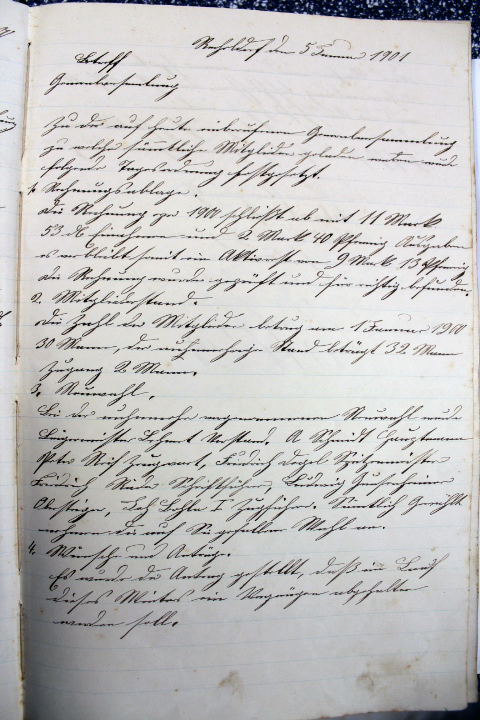 den 5 Januar 1901
Betreff
Generalversammlung
Zu der auf heute einberufenen Generalversammlung
zu welcher sämmtliche Mitglieder geladen waren wurde
folgende Tagesordnung festgesetzt.
1. Rechnungsablage.
Die Rechnung pro 1900 schließt ab mit 11 Mark
53 Einnahmen und 2 Mark 40 Pfennig Ausgaben
es verbleibt somit ein Aktivrest von 9 Mark 13 Pfennig
Die Rechnung wurde geprüft und für richtig befunden.
2. Mitgliederstand.
Die Zahl der Mitglieder betrug am 1 Januar 1900
30 Mann, der nunmehrige Stand beträgt 32 Mann
Zugang 2 Mann.
3. Neuwahl.
Bei der nunmehr vorgenommenen Neuwahl wurde
Bürgermeister Vorstand, A Schmidt Hauptmann
Peter Zeugwart, Friedrich Spritzenmeister
Friedrich Schriftführer, Ludwig
Obersteiger, I Zugführer. Sämtlich Gewählte
nehmen die auf Sie gefallene Wahl an.
4. Wünsche und Anträge.
Es wurde der Antrag gestellt, daß im Laufe
dieses Winters ein Vergnügen abgehalten
werden soll.